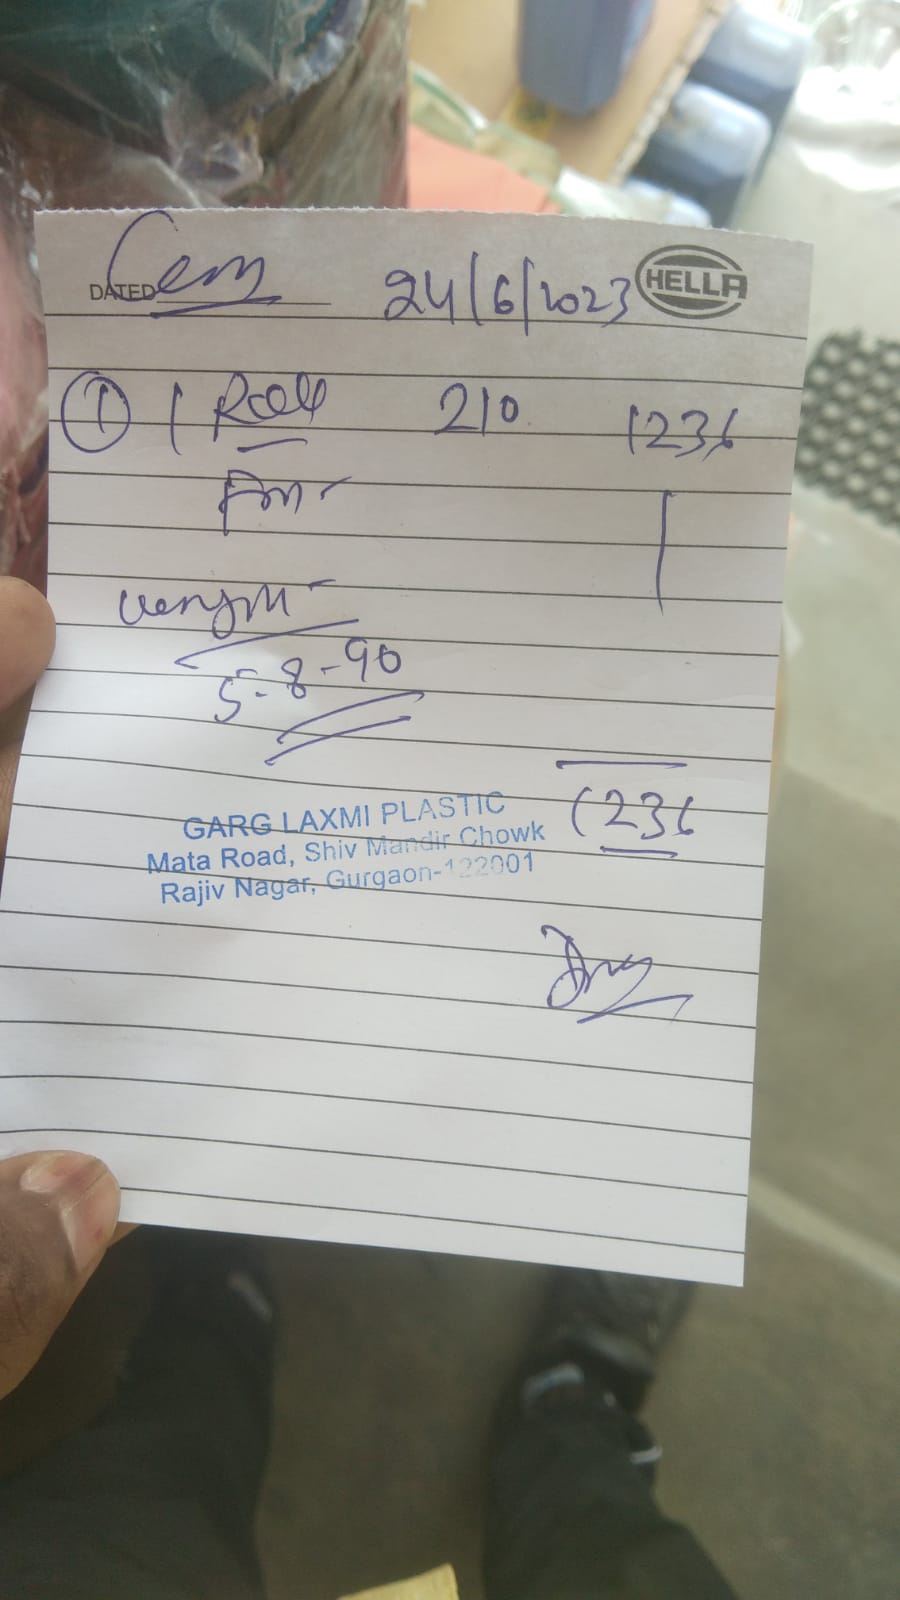 Cem 24/6/2023 HELLA
DATED
① 1 Roll 210 1236
5-8-90
1236
GARG LAXMI PLASTIC
Mata Road, Shiv Mandir Chowk
Rajiv Nagar, Gurgaon-122001